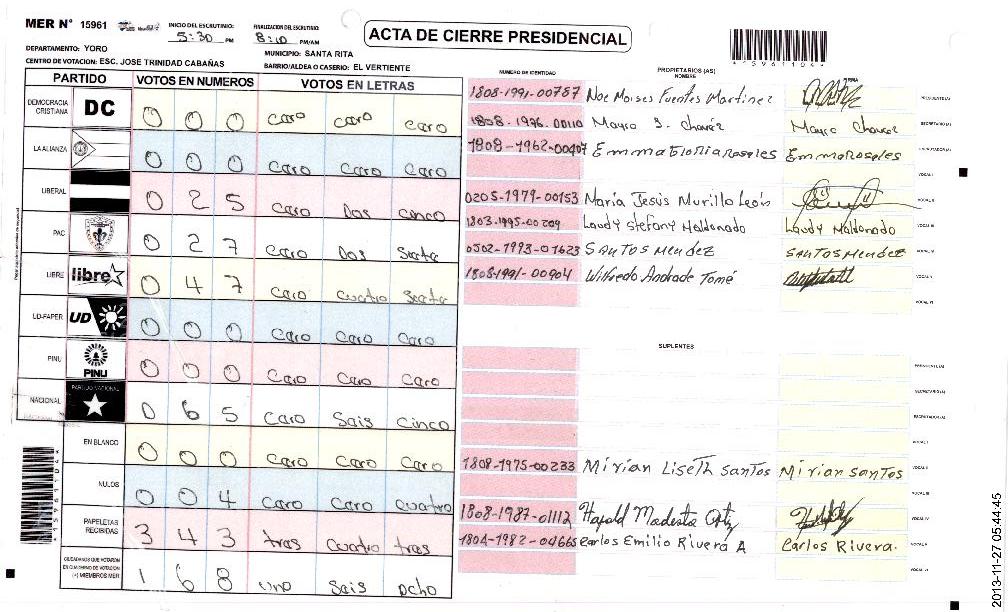 MER N° 15961
INICIO DEL ESCRUTINIO: 5:30 PM
FINALIZACION DEL ESCRUTINIO: 8:10 PM/AM
ACTA DE CIERRE PRESIDENCIAL
DEPARTAMENTO: YORO
MUNICIPIO: SANTA RITA
CENTRO DE VOTACION: ESC. JOSE TRINIDAD CABAÑAS
BARRIO/ALDEA O CASERIO: EL VERTIENTE
PARTIDO VOTOS EN NUMEROS VOTOS EN LETRAS
DEMOCRACIA CRISTIANA DC 0 0 0 caro caro caro
LA ALIANZA 0 0 0 caro caro caro
LIBERAL 0 2 5 caro Dos cinco
PAC 0 2 7 caro Dos Sieta
LIBRE libre 0 4 7 caro cuatro Sieta
UD-FAPER UD 0 0 0 caro caro caro
PINU PINU 0 0 0 caro caro caro
NACIONAL PARTIDO NACIONAL 0 6 5 caro Sais cinco
EN BLANCO 0 0 0 caro caro caro
NULOS 0 0 4 caro caro cuatro
PAPELETAS RECIBIDAS 3 4 3 tras cuatro tras
CIUDADANOS QUE VOTARON EN CUADERNO DE VOTACION (+) MIEMBROS MER 1 6 8 uno Sais ocho
NUMERO DE IDENTIDAD PROPIETARIOS (AS) NOMBRE FIRMA
1808-1991-00787 Noe Moises Fuentes Martinez PRESIDENTE(A)
1808-1996-00110 Mayro J. Chavéz Mayro Chavez SECRETARIO(A)
1808-1962-00407 Emma Eloria rosales Emma Rosales ESCRUTADOR(A)
VOCAL I
0205-1979-00153 Maria Jesus Murillo León VOCAL II
1803-1995-00209 Laudy Stefany Maldonado Laudy Maldonado VOCAL III
0502-1993-01623 SANTOS Mendez SANTOS Mendez VOCAL IV
1808-1991-00904 Wilfredo Andrade Tomé VOCAL V
VOCAL VI
SUPLENTES
PRESIDENTE(A)
SECRETARIO(A)
ESCRUTADOR(A)
VOCAL I
1808-1975-00233 Mirian Liseth Santos Mirian Santos VOCAL II
VOCAL III
1808-1987-01112 Harold Modesto Ortiz VOCAL IV
1804-1982-04665 Carlos Emilio Rivera A Carlos Rivera. VOCAL V
VOCAL VI
2013-11-27 05:44:45